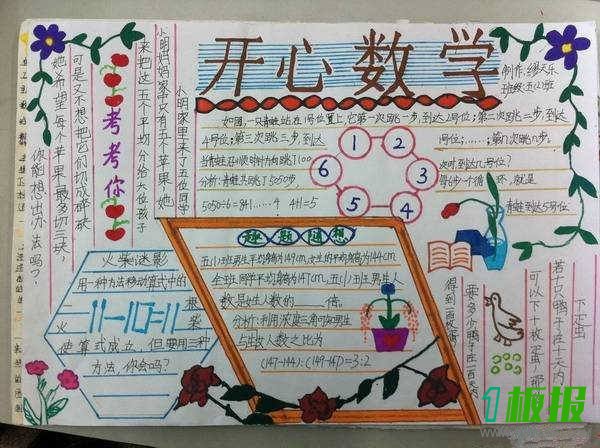 开心数学
制作:缪天乐
班级:五(2)班
如图,一只青蛙站在1号位置上,它第一次跳一步,到达2号位;第二次跳二步,到达
4号位;第三次跳三步,到达
1号位;……;第n次跳n步。
当青蛙沿顺时针方向跳了100
次时,到达几号位?
分析:青蛙共跳了5050步,
每6步一个循环,就是
5050÷6=841……4 4+1=5
青蛙到达5号位
1
2
3
4
5
6
小明家里来了五位同学
小明妈妈家中只有五个苹果,她
来把这五个平均分给六位孩子
可是又不想把它们切成碎块
她希望每个苹果最多切三块,
你能想出办法吗?
考考你
火柴迷影
用一种方法移动算式中的一根
火柴
11-10=11
使算式成立,但要用三种
方法,你会吗?
趣题遐想
五(1)班男生平均身高为149cm,女生的平均身高为144cm
全班同学平均身高为147cm,五(1)班男生人
数是女生人数的____倍。
分析:利用浓度三角可知男生
与女生人数之比为
(147-144):(149-147)=3:2
下歪蛋
若十只鸭子在十天内
可以下十枚蛋,那
要多少鸭子在一百天内
得到一百枚蛋?
1板报